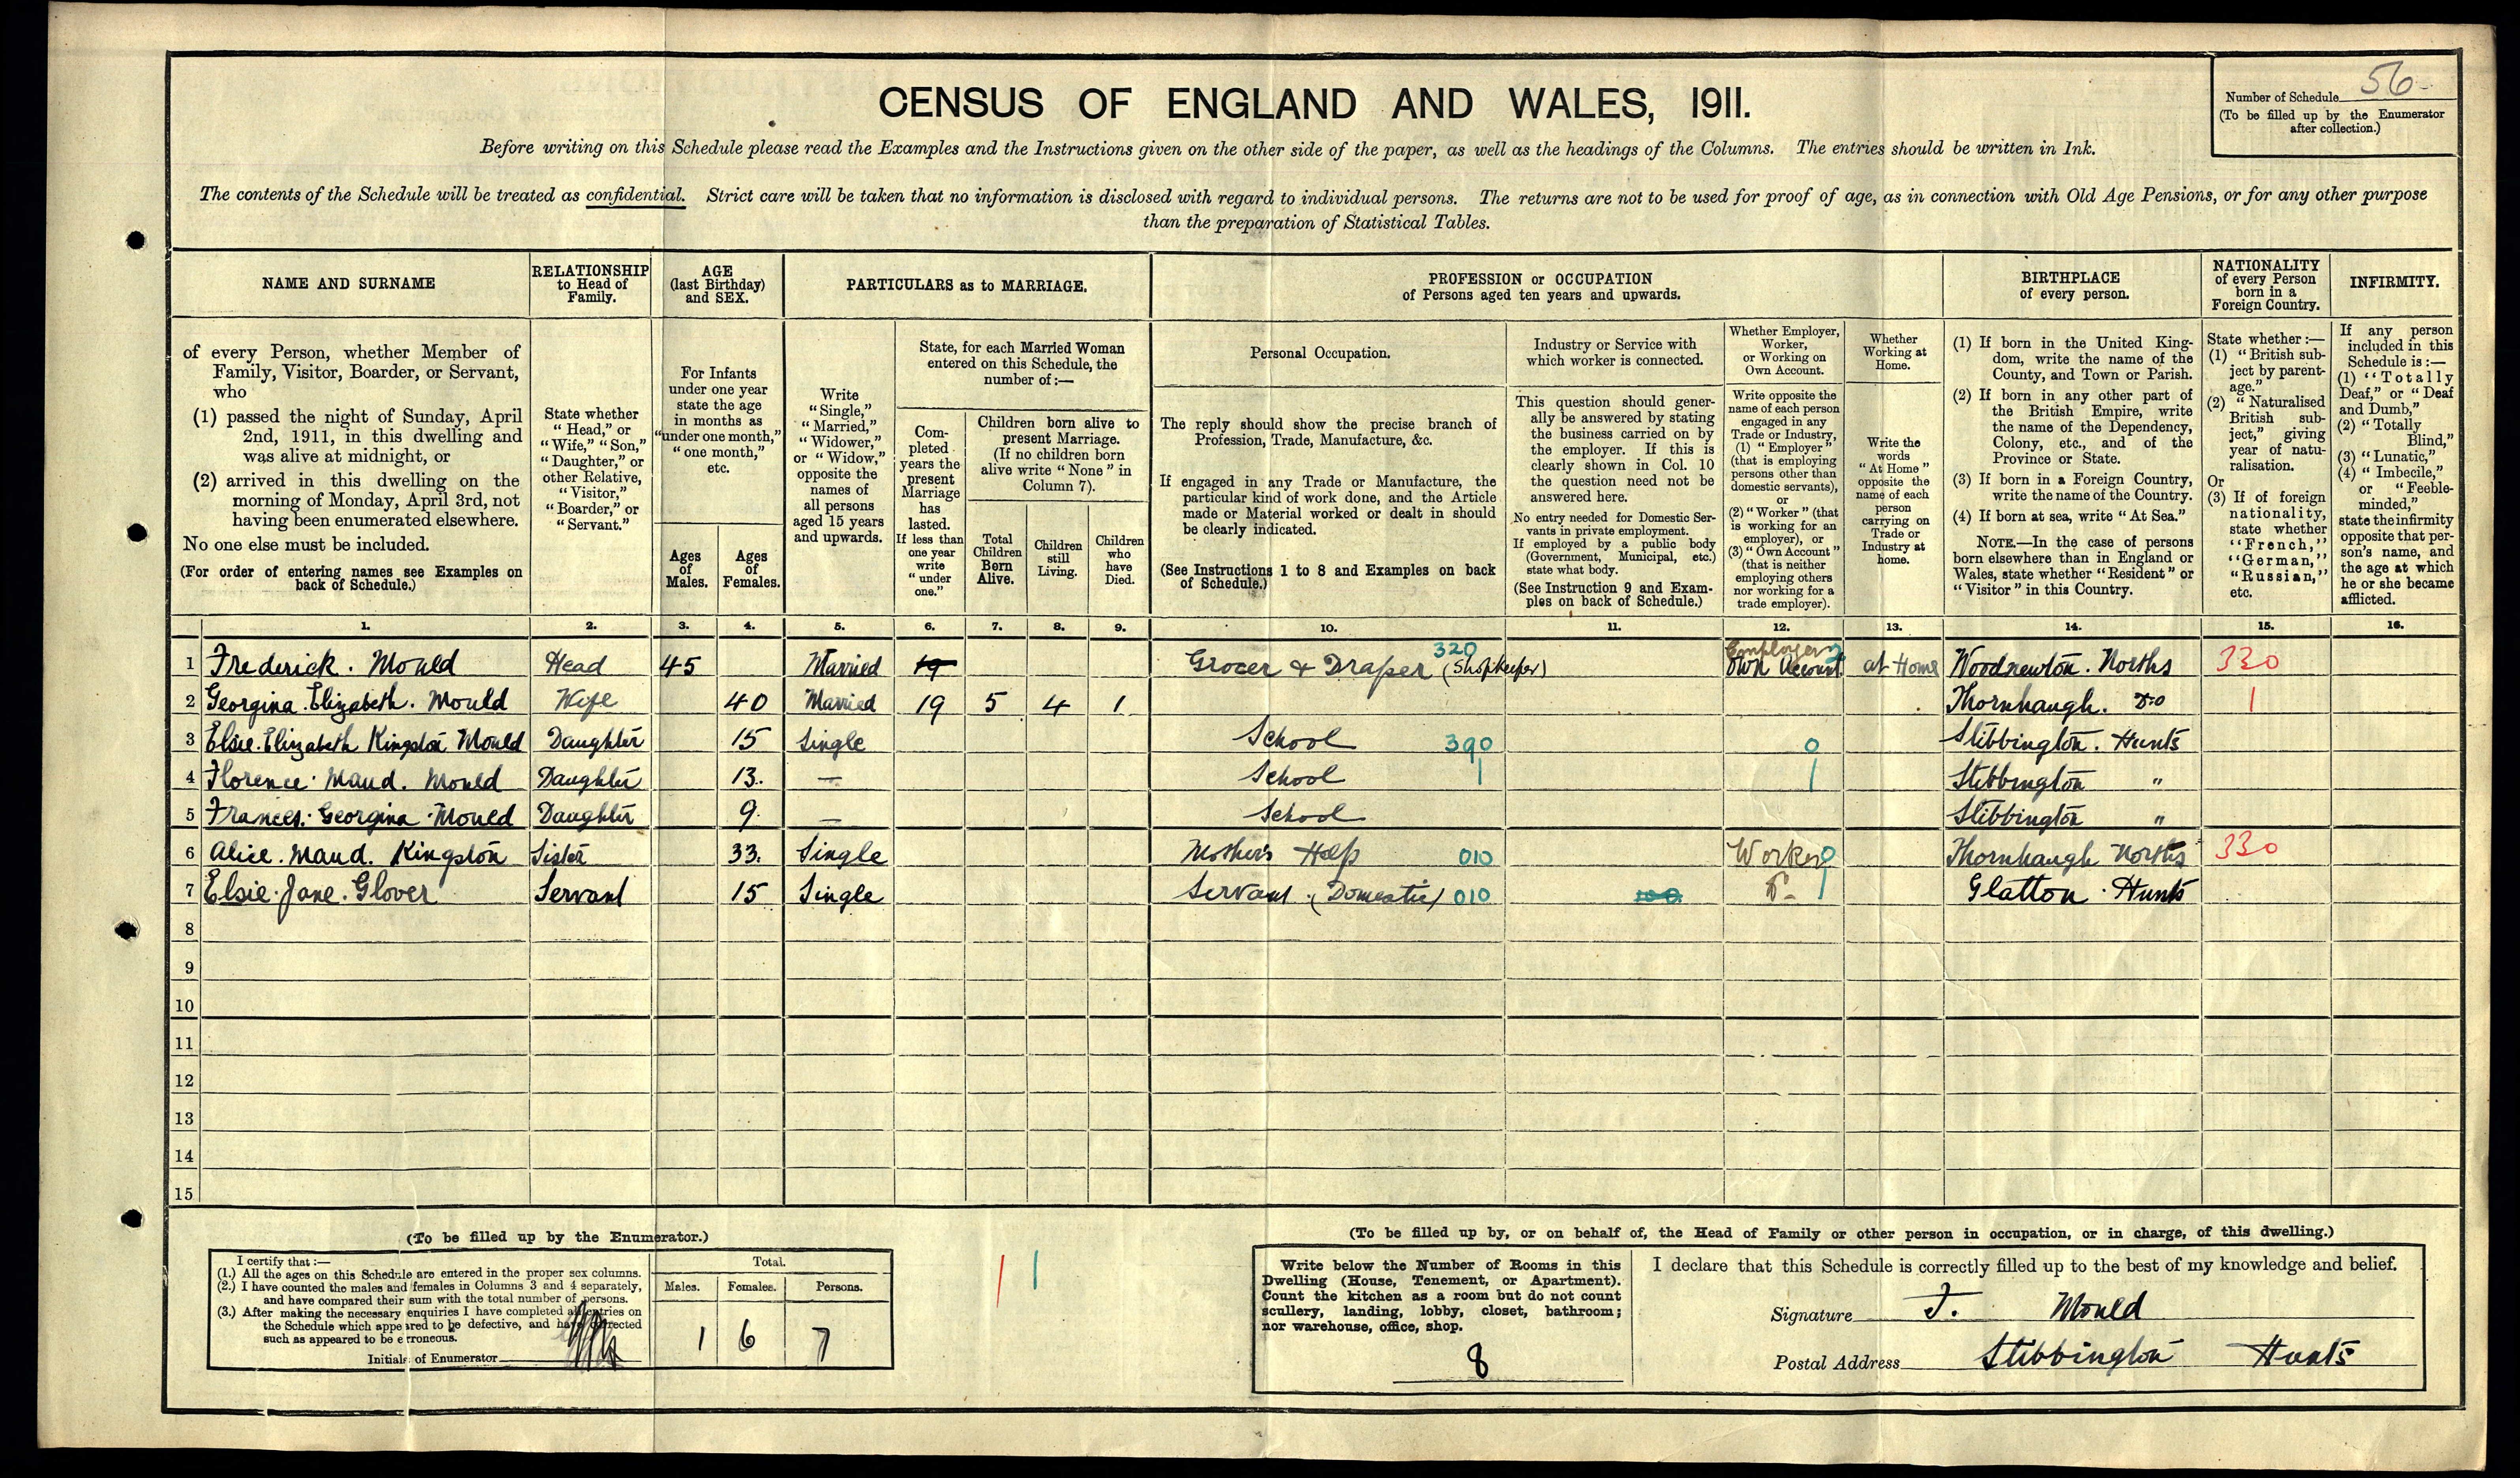 CENSUS OF ENGLAND AND WALES, 1911.
Number of Schedule 56
(To be filled up by the Enumerator
after collection.)
Before writing on this Schedule please read the Examples and the Instructions given on the other side of the paper, as well as the headings of the Columns. The entries should be written in Ink.
The contents of the Schedule will be treated as confidential. Strict care will be taken that no information is disclosed with regard to individual persons. The returns are not to be used for proof of age, as in connection with Old Age Pensions, or for any other purpose
than the preparation of Statistical Tables.
NAME AND SURNAME
of every Person, whether Member of
Family, Visitor, Boarder, or Servant,
who
(1) passed the night of Sunday, April
2nd, 1911, in this dwelling and
was alive at midnight, or
(2) arrived in this dwelling on the
morning of Monday, April 3rd, not
having been enumerated elsewhere.
No one else must be included.
(For order of entering names see Examples on
back of Schedule.)
RELATIONSHIP
to Head of
Family.
State whether
"Head," or
"Wife," "Son,"
"Daughter," or
other Relative,
"Visitor,"
"Boarder," or
"Servant."
AGE
(last Birthday)
and SEX.
For Infants
under one year
state the age
in months as
"under one month,"
"one month,"
etc.
Ages
of
Males.
Ages
of
Females.
PARTICULARS as to MARRIAGE.
Write
"Single,"
"Married,"
"Widower,"
or "Widow,"
opposite the
names of
all persons
aged 15 years
and upwards.
State, for each Married Woman
entered on this Schedule, the
number of:—
Com-
pleted
years the
present
Marriage
has
lasted.
If less than
one year
write
"under
one."
Children born alive to
present Marriage.
(If no children born
alive write "None" in
Column 7).
Total
Children
Born
Alive.
Children
still
Living.
Children
who
have
Died.
PROFESSION or OCCUPATION
of Persons aged ten years and upwards.
Personal Occupation.
The reply should show the precise branch of
Profession, Trade, Manufacture, &c.
If engaged in any Trade or Manufacture, the
particular kind of work done, and the Article
made or Material worked or dealt in should
be clearly indicated.
(See Instructions 1 to 8 and Examples on back
of Schedule.)
Industry or Service with
which worker is connected.
This question should gener-
ally be answered by stating
the business carried on by
the employer. If this is
clearly shown in Col. 10
the question need not be
answered here.
No entry needed for Domestic Ser-
vants in private employment.
If employed by a public body
(Government, Municipal, etc.)
state what body.
(See Instruction 9 and Exam-
ples on back of Schedule.)
Whether Employer,
Worker,
or Working on
Own Account.
Write opposite the
name of each person
engaged in any
Trade or Industry,
(1) "Employer"
(that is employing
persons other than
domestic servants),
or
(2) "Worker" (that
is working for an
employer), or
(3) "Own Account"
(that is neither
employing others
nor working for a
trade employer).
Whether
Working at
Home.
Write the
words
"At Home"
opposite the
name of each
person
carrying on
Trade or
Industry at
home.
BIRTHPLACE
of every person.
(1) If born in the United King-
dom, write the name of the
County, and Town or Parish.
(2) If born in any other part of
the British Empire, write
the name of the Dependency,
Colony, etc., and of the
Province or State.
(3) If born in a Foreign Country,
write the name of the Country.
(4) If born at sea, write "At Sea."
NOTE.—In the case of persons
born elsewhere than in England or
Wales, state whether "Resident" or
"Visitor" in this Country.
NATIONALITY
of every Person
born in a
Foreign Country.
State whether:—
(1) "British sub-
ject by parent-
age."
(2) "Naturalised
British sub-
ject," giving
year of natu-
ralisation.
Or
(3) If of foreign
nationality,
state whether
"French,"
"German,"
"Russian,"
etc.
INFIRMITY.
If any person
included in this
Schedule is:—
(1) "Totally
Deaf," or "Deaf
and Dumb,"
(2) "Totally
Blind,"
(3) "Lunatic,"
(4) "Imbecile,"
or "Feeble-
minded,"
state the infirmity
opposite that per-
son's name, and
the age at which
he or she became
afflicted.
1. 2. 3. 4. 5. 6. 7. 8. 9. 10. 11. 12. 13. 14. 15. 16.
1 Frederick. Mould Head 45 Married 19 Grocer & Draper (Shopkeeper) 320 Employer Own Account at Home Woodnewton. Norths 330
2 Georgina. Elizabeth. Mould Wife 40 Married 19 5 4 1 Thornhaugh. Do 1
3 Elsie. Elizabeth Kingston Mould Daughter 15 Single School 390 0 Stibbington. Hunts
4 Florence. Maud. Mould Daughter 13. — School 1 1 Stibbington "
5 Frances. Georgina. Mould Daughter 9. — School Stibbington "
6 Alice. Maud. Kingston Sister 33. Single Mother's Help 010 Worker 0 Thornhaugh Norths 330
7 Elsie. Jane. Glover Servant 15 Single Servant (Domestic) 010 100 Do 1 Glatton. Hunts
8
9
10
11
12
13
14
15
(To be filled up by the Enumerator.)
I certify that:—
(1.) All the ages on this Schedule are entered in the proper sex columns.
(2.) I have counted the males and females in Columns 3 and 4 separately,
and have compared their sum with the total number of persons.
(3.) After making the necessary enquiries I have completed all entries on
the Schedule which appeared to be defective, and have corrected
such as appeared to be erroneous.
Initials of Enumerator
Total.
Males. Females. Persons.
1 6 7
1 1
(To be filled up by, or on behalf of, the Head of Family or other person in occupation, or in charge, of this dwelling.)
Write below the Number of Rooms in this
Dwelling (House, Tenement, or Apartment).
Count the kitchen as a room but do not count
scullery, landing, lobby, closet, bathroom;
nor warehouse, office, shop.
8
I declare that this Schedule is correctly filled up to the best of my knowledge and belief.
Signature F. Mould
Postal Address Stibbington Hunts